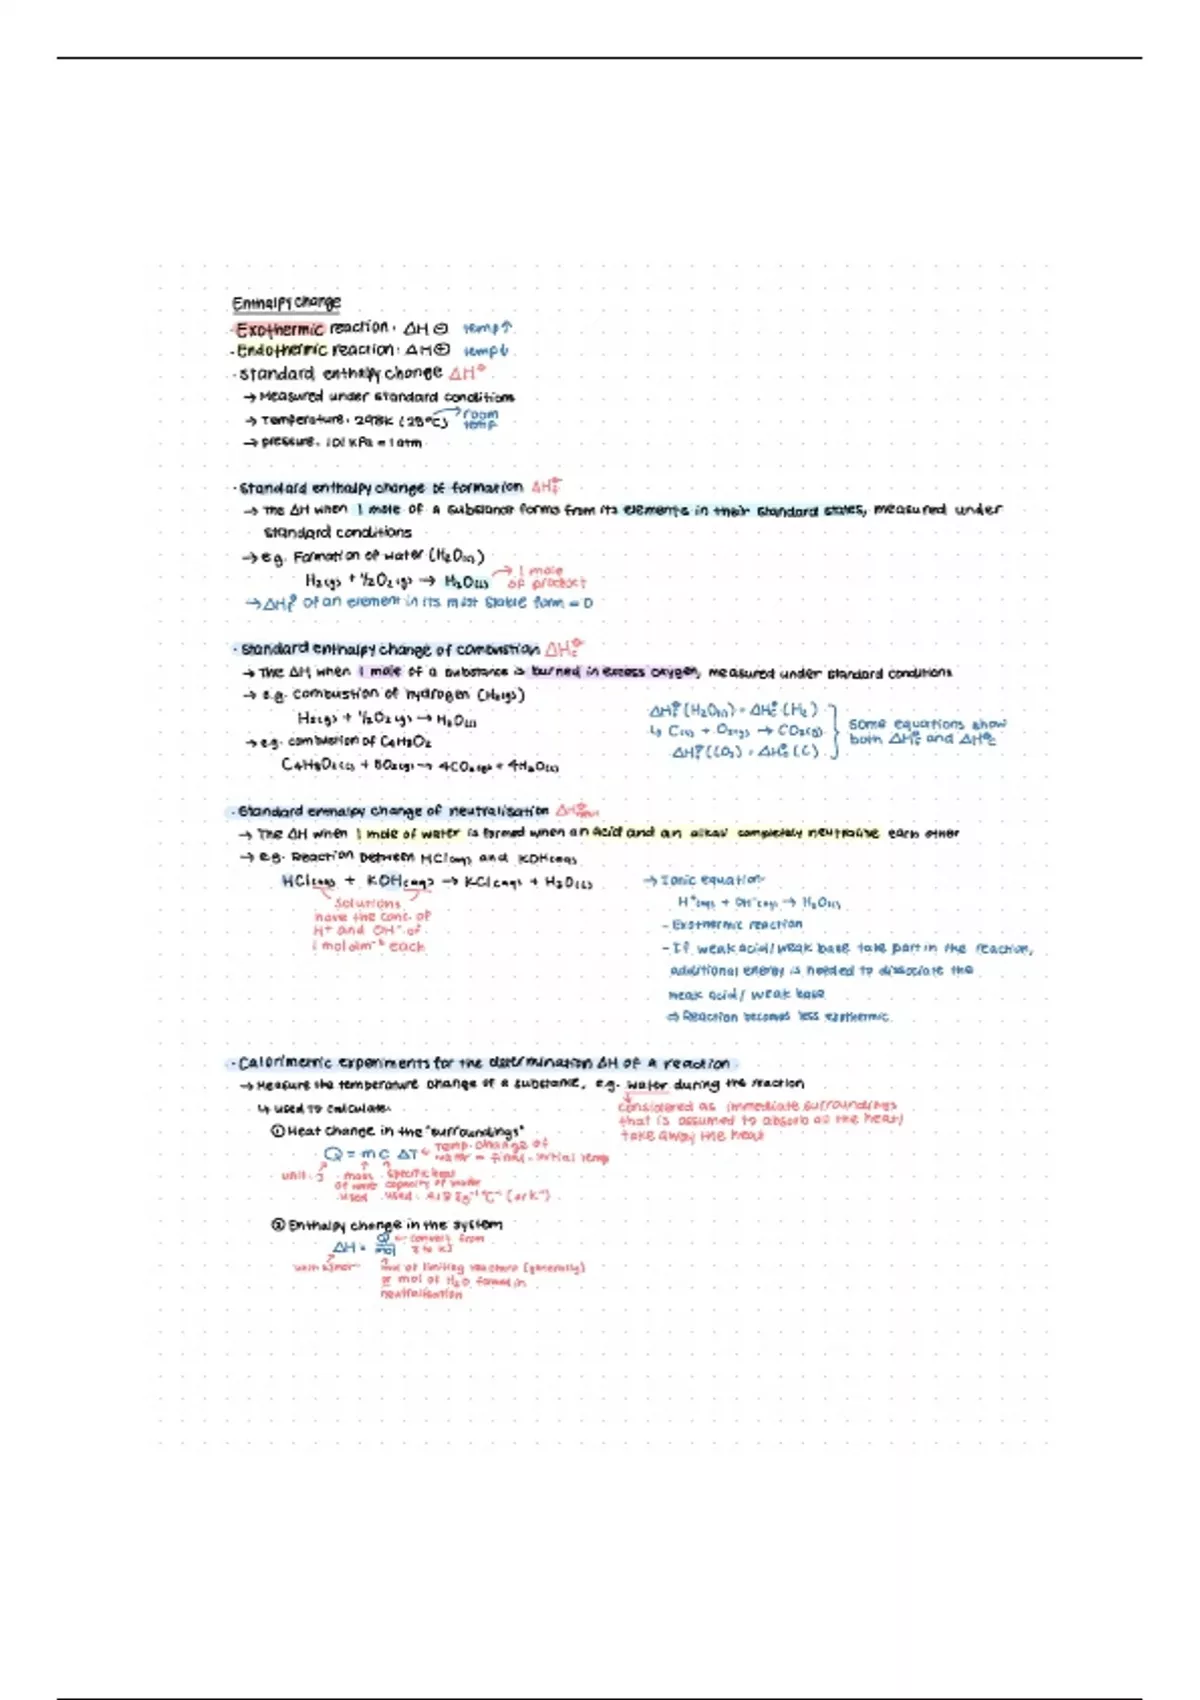 Enthalpy change
· Exothermic reaction: ΔH ⊖ temp↑
· Endothermic reaction: ΔH ⊕ temp↓
· Standard enthalpy change ΔH⦵
→ Measured under standard conditions
→ Temperature: 298K (25°C) → room temp
→ pressure: 101 kPa = 1 atm
· Standard enthalpy change of formation ΔHf⦵
→ The ΔH when 1 mole of a substance forms from its elements in their standard states, measured under
standard conditions
→ e.g. Formation of water (H₂O(l))
H₂(g) + ½O₂(g) → H₂O(l) → 1 mole of product
→ ΔHf⦵ of an element in its most stable form = 0
· Standard enthalpy change of combustion ΔHc⦵
→ The ΔH when 1 mole of a substance is burned in excess oxygen, measured under standard conditions
→ e.g. combustion of hydrogen (H₂(g))
H₂(g) + ½O₂(g) → H₂O(l)
→ e.g. combustion of C₄H₈O₂
C₄H₈O₂(l) + 5O₂(g) → 4CO₂(g) + 4H₂O(l)
ΔHf⦵(H₂O(l)) = ΔHc⦵(H₂)
↳ C(s) + O₂(g) → CO₂(g)
ΔHf⦵(CO₂) = ΔHc⦵(C)
some equations show
both ΔHf⦵ and ΔHc⦵
· Standard enthalpy change of neutralisation ΔHneut⦵
→ The ΔH when 1 mole of water is formed when an acid and an alkali completely neutralise each other
→ e.g. Reaction between HCl(aq) and KOH(aq)
HCl(aq) + KOH(aq) → KCl(aq) + H₂O(l)
solutions
have the conc. of
H⁺ and OH⁻ of
1 moldm⁻³ each
→ Ionic equation:
H⁺(aq) + OH⁻(aq) → H₂O(l)
- Exothermic reaction
- If weak acid/weak base take part in the reaction,
additional energy is needed to dissociate the
weak acid/ weak base
⇒ Reaction becomes less exothermic
· Calorimetric experiments for the determination ΔH of a reaction
→ Measure the temperature change of a substance, e.g. water during the reaction
considered as immediate surroundings
that is assumed to absorb all the heat/
take away the heat
↳ used to calculate:
① Heat change in the "surroundings"
Q = m c ΔT ← temp. change of
water = final - initial temp
unit: J
mass of water used
specific heat capacity of water used: 4.18 Jg⁻¹ °C⁻¹ (or K⁻¹)
② Enthalpy change in the system
ΔH = Q/mol ← convert from J to kJ
mol of limiting reactant (generally)
or mol of H₂O formed in
neutralisation